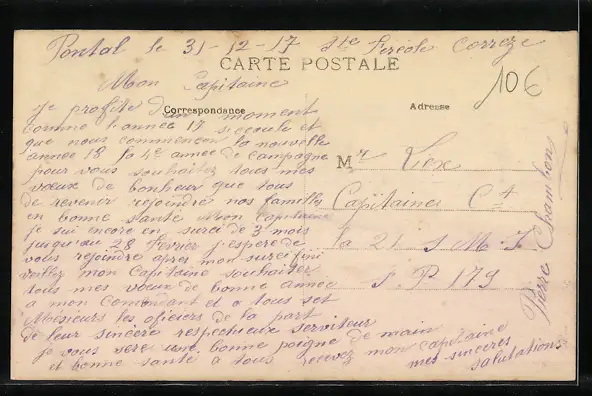 Pontal le 31-12-17 Ste Fereole Correze
CARTE POSTALE
106
Mon Capitaine
Correspondance
Adresse
Je profite d'un moment
comme l'année 17 s'ecoule et
que nous commencon la nouvelle
année 18 la 4e année de campagne
pour vous souhaitez tous mes
vœux de bonheur que tous
de revenir rejoindre nos familly
en bonne santé Mon Capitaine
je sui encore en surci de 3 mois
jusqu'au 28 fevrier j'espere de
vous rejoindre apres mon surci fini
veillez mon Capitaine souhaiter
tous mes vœux de bonne année
a mon Comendant et a tous set
Mesieurs les oficiers de la part
de leur sincère respectueux serviteur
je vous sere une bonne poigne de main
et bonne santé a tous recevez mon capitaine
mes sinceres
salutations
Mr Liex
Capitaine Ct
la 21 S M I
S.P. 179
Pierre